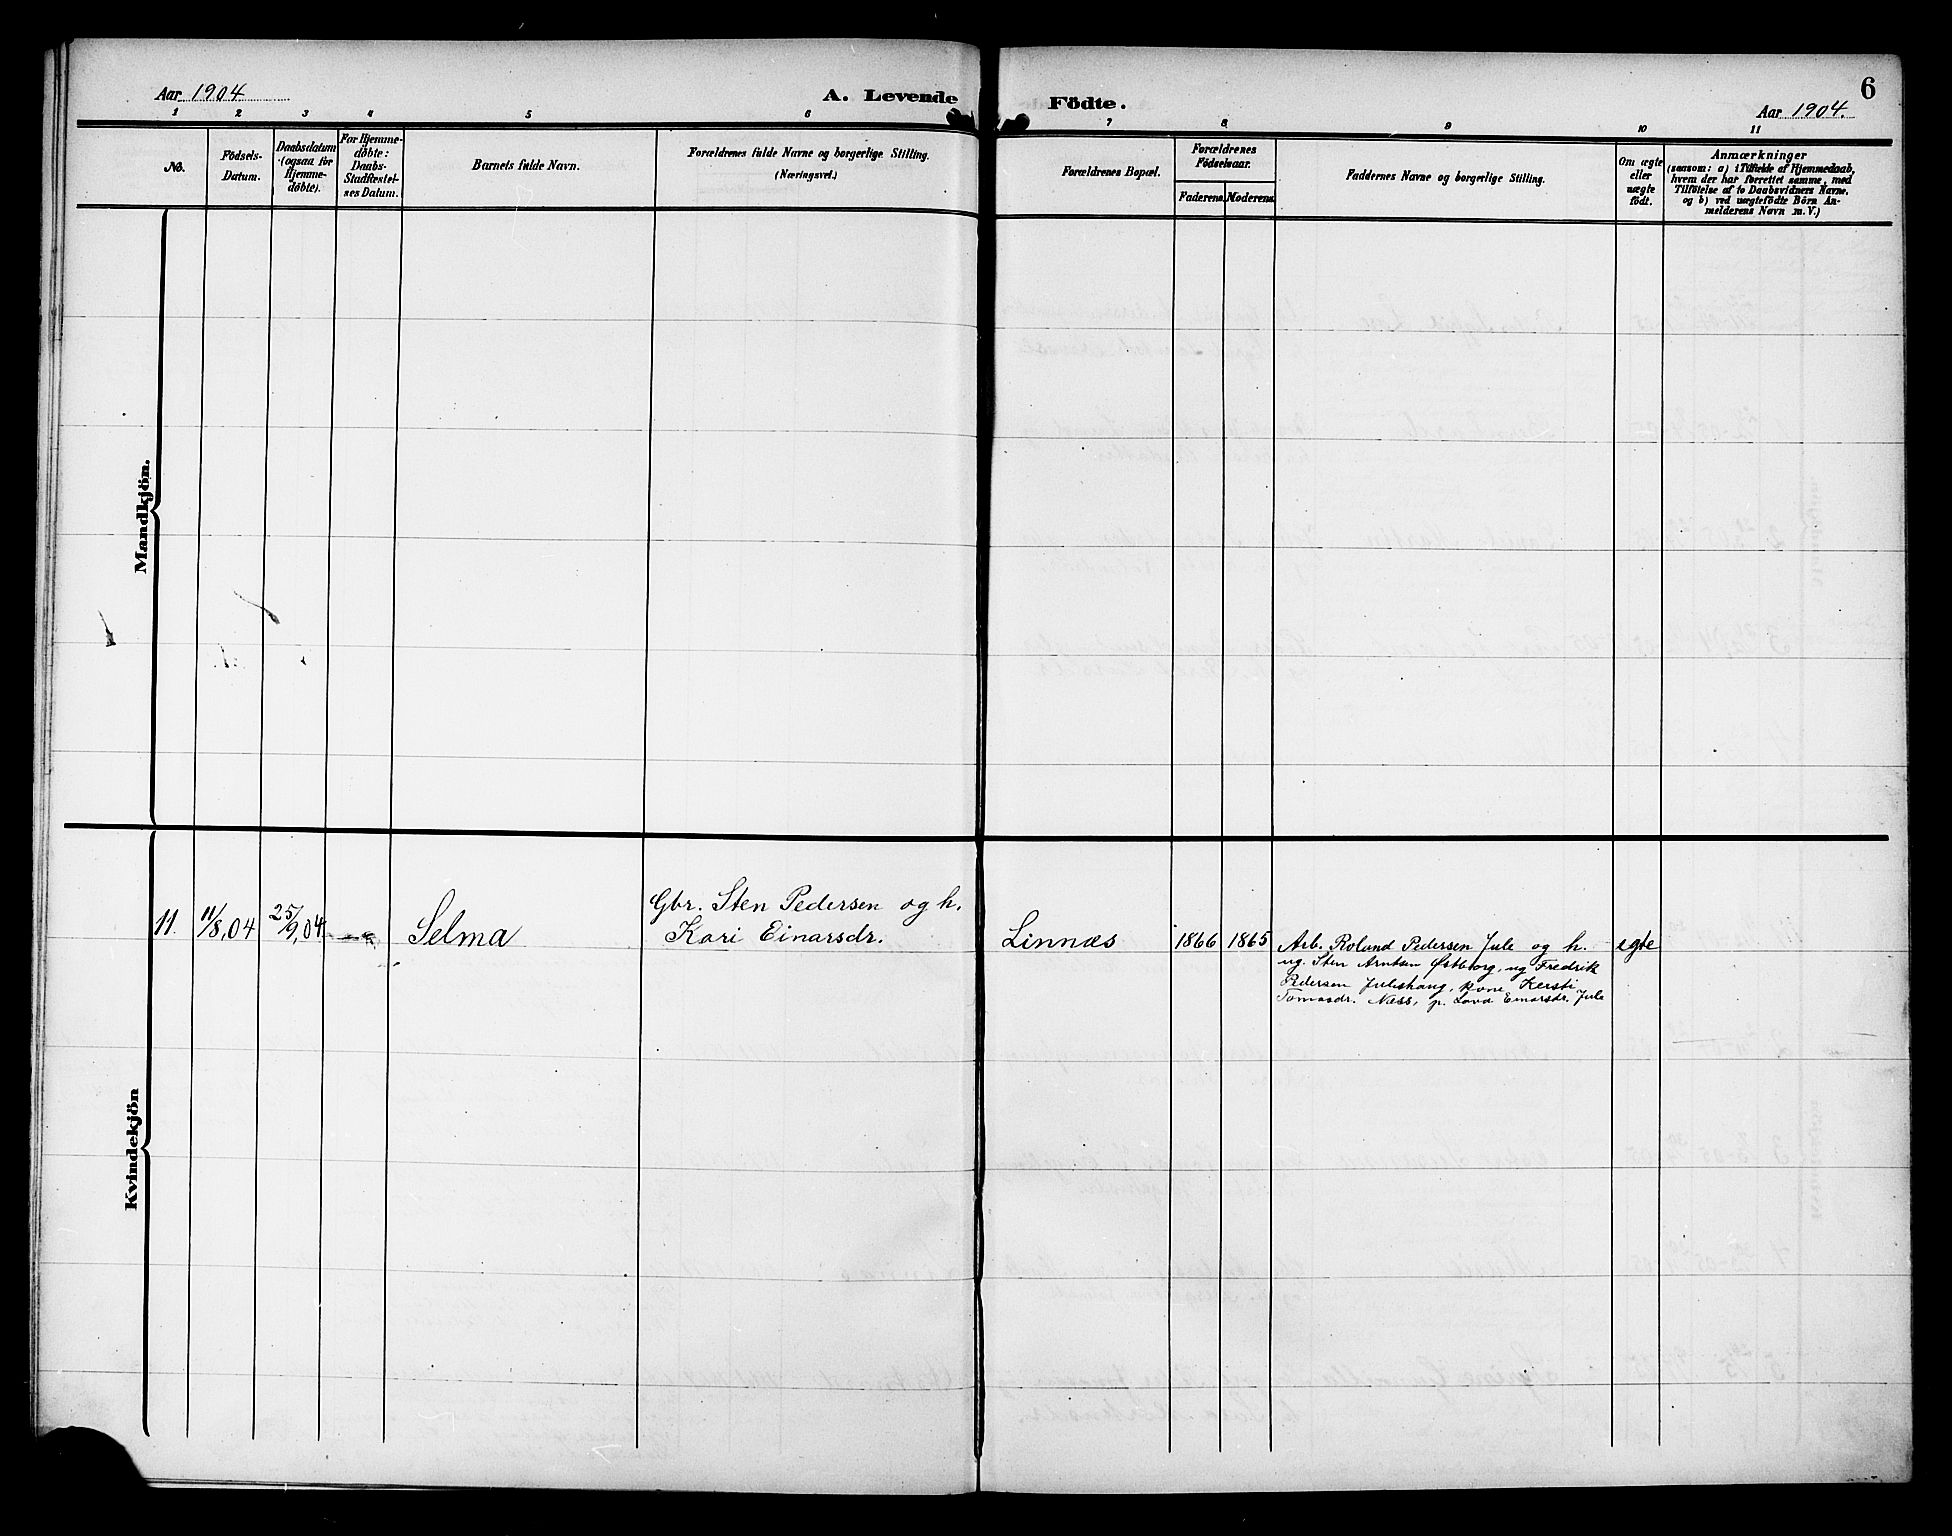 Aar 1904
A. Levende Födte.
6
Aar 1904.
1 2 3 4 5 6 7 8 9 10 11
No.
Födsels-
Datum.
Daabsdatum
(ogsaa for
Hjemme-
døbte).
For Hjemme-
døbte:
Daabs-
Stadfæstel-
ses Datum.
Barnets fulde Navn.
Forældrenes fulde Navne og borgerlige Stilling.
(Næringsvei.)
Forældrenes Bopæl.
Forældrenes
Födselsaar.
Faderens. Moderens.
Faddernes Navne og borgerlige Stilling.
Om ægte
eller
uægte
födt.
Anmærkninger
(saasom: a) i Tilfælde af Hjemmedaab,
hvem der har forrettet samme, med
Tilföielse af to Daabsvidners Navne,
og b) ved uægtefödte Börn An-
melderens Navn m. V.)
Mandkjön.
Kvindekjön
11. 11/8,04 25/9,04 — Selma
Gbr. Sten Pedersen og h.
Kari Einarsdr.
Linnæs 1866 1865
Arb. Rolund Pedersen Jule og h.
ug. Sten Arntsen Østborg, ug Fredrik
Pedersen Juleshaug, kone Kersti
Tomasdr. Næss, p. Lova Einarsdr. Jule
egte